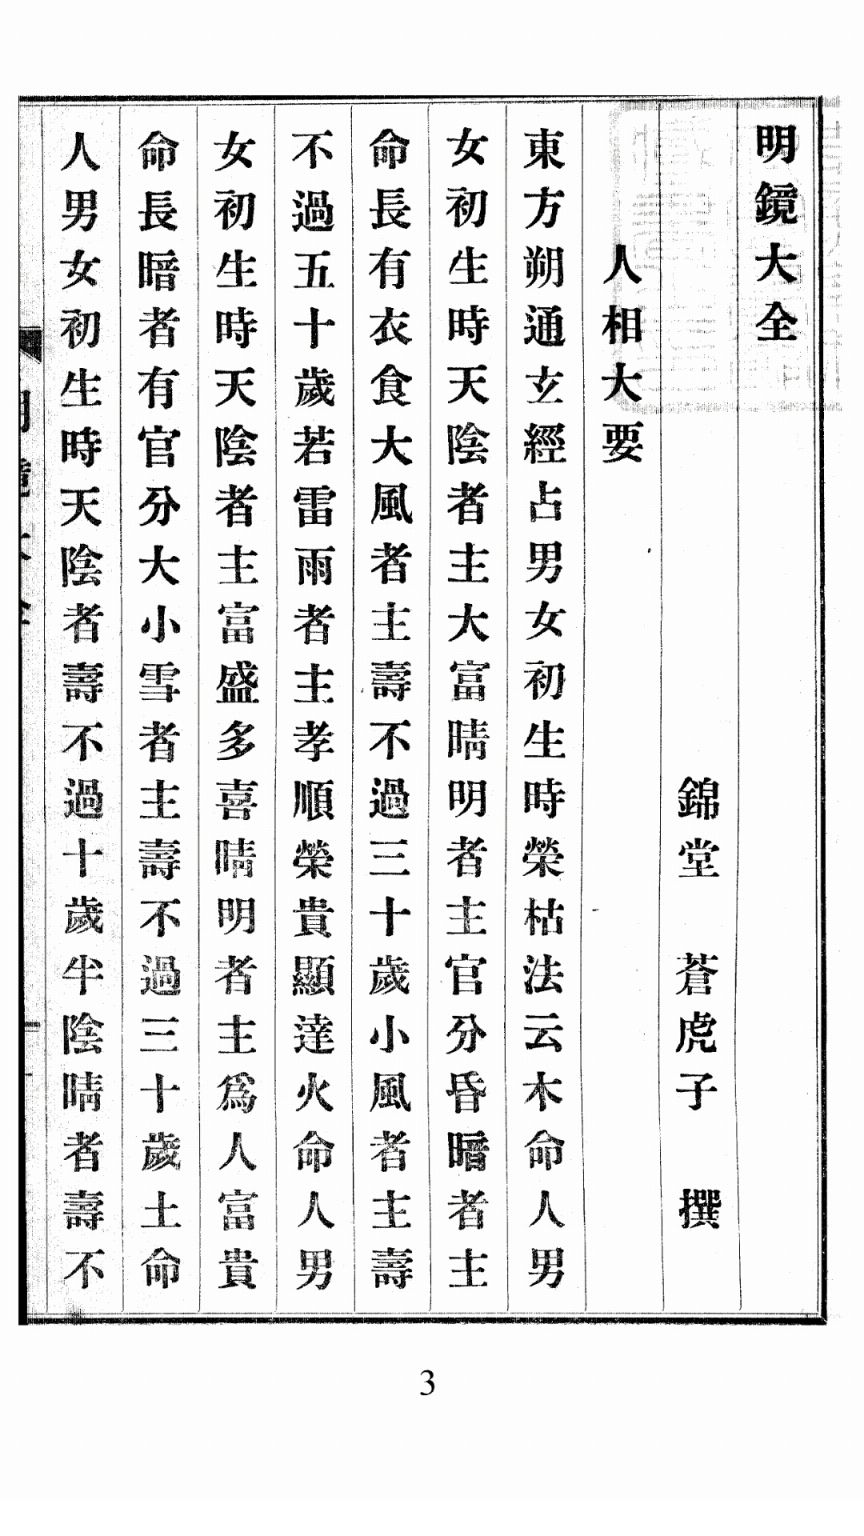 明鏡大全
錦堂　蒼虎子　撰
人相大要
東方朔通玄經占男女初生時榮枯法云木命人男
女初生時天陰者主大富晴明者主官分昏暗者主
命長有衣食大風者主壽不過三十歲小風者主壽
不過五十歲若雷雨者主孝順榮貴顯達火命人男
女初生時天陰者主富盛多喜晴明者主爲人富貴
命長暗者有官分大小雪者主壽不過三十歲土命
人男女初生時天陰者壽不過十歲半陰晴者壽不
3